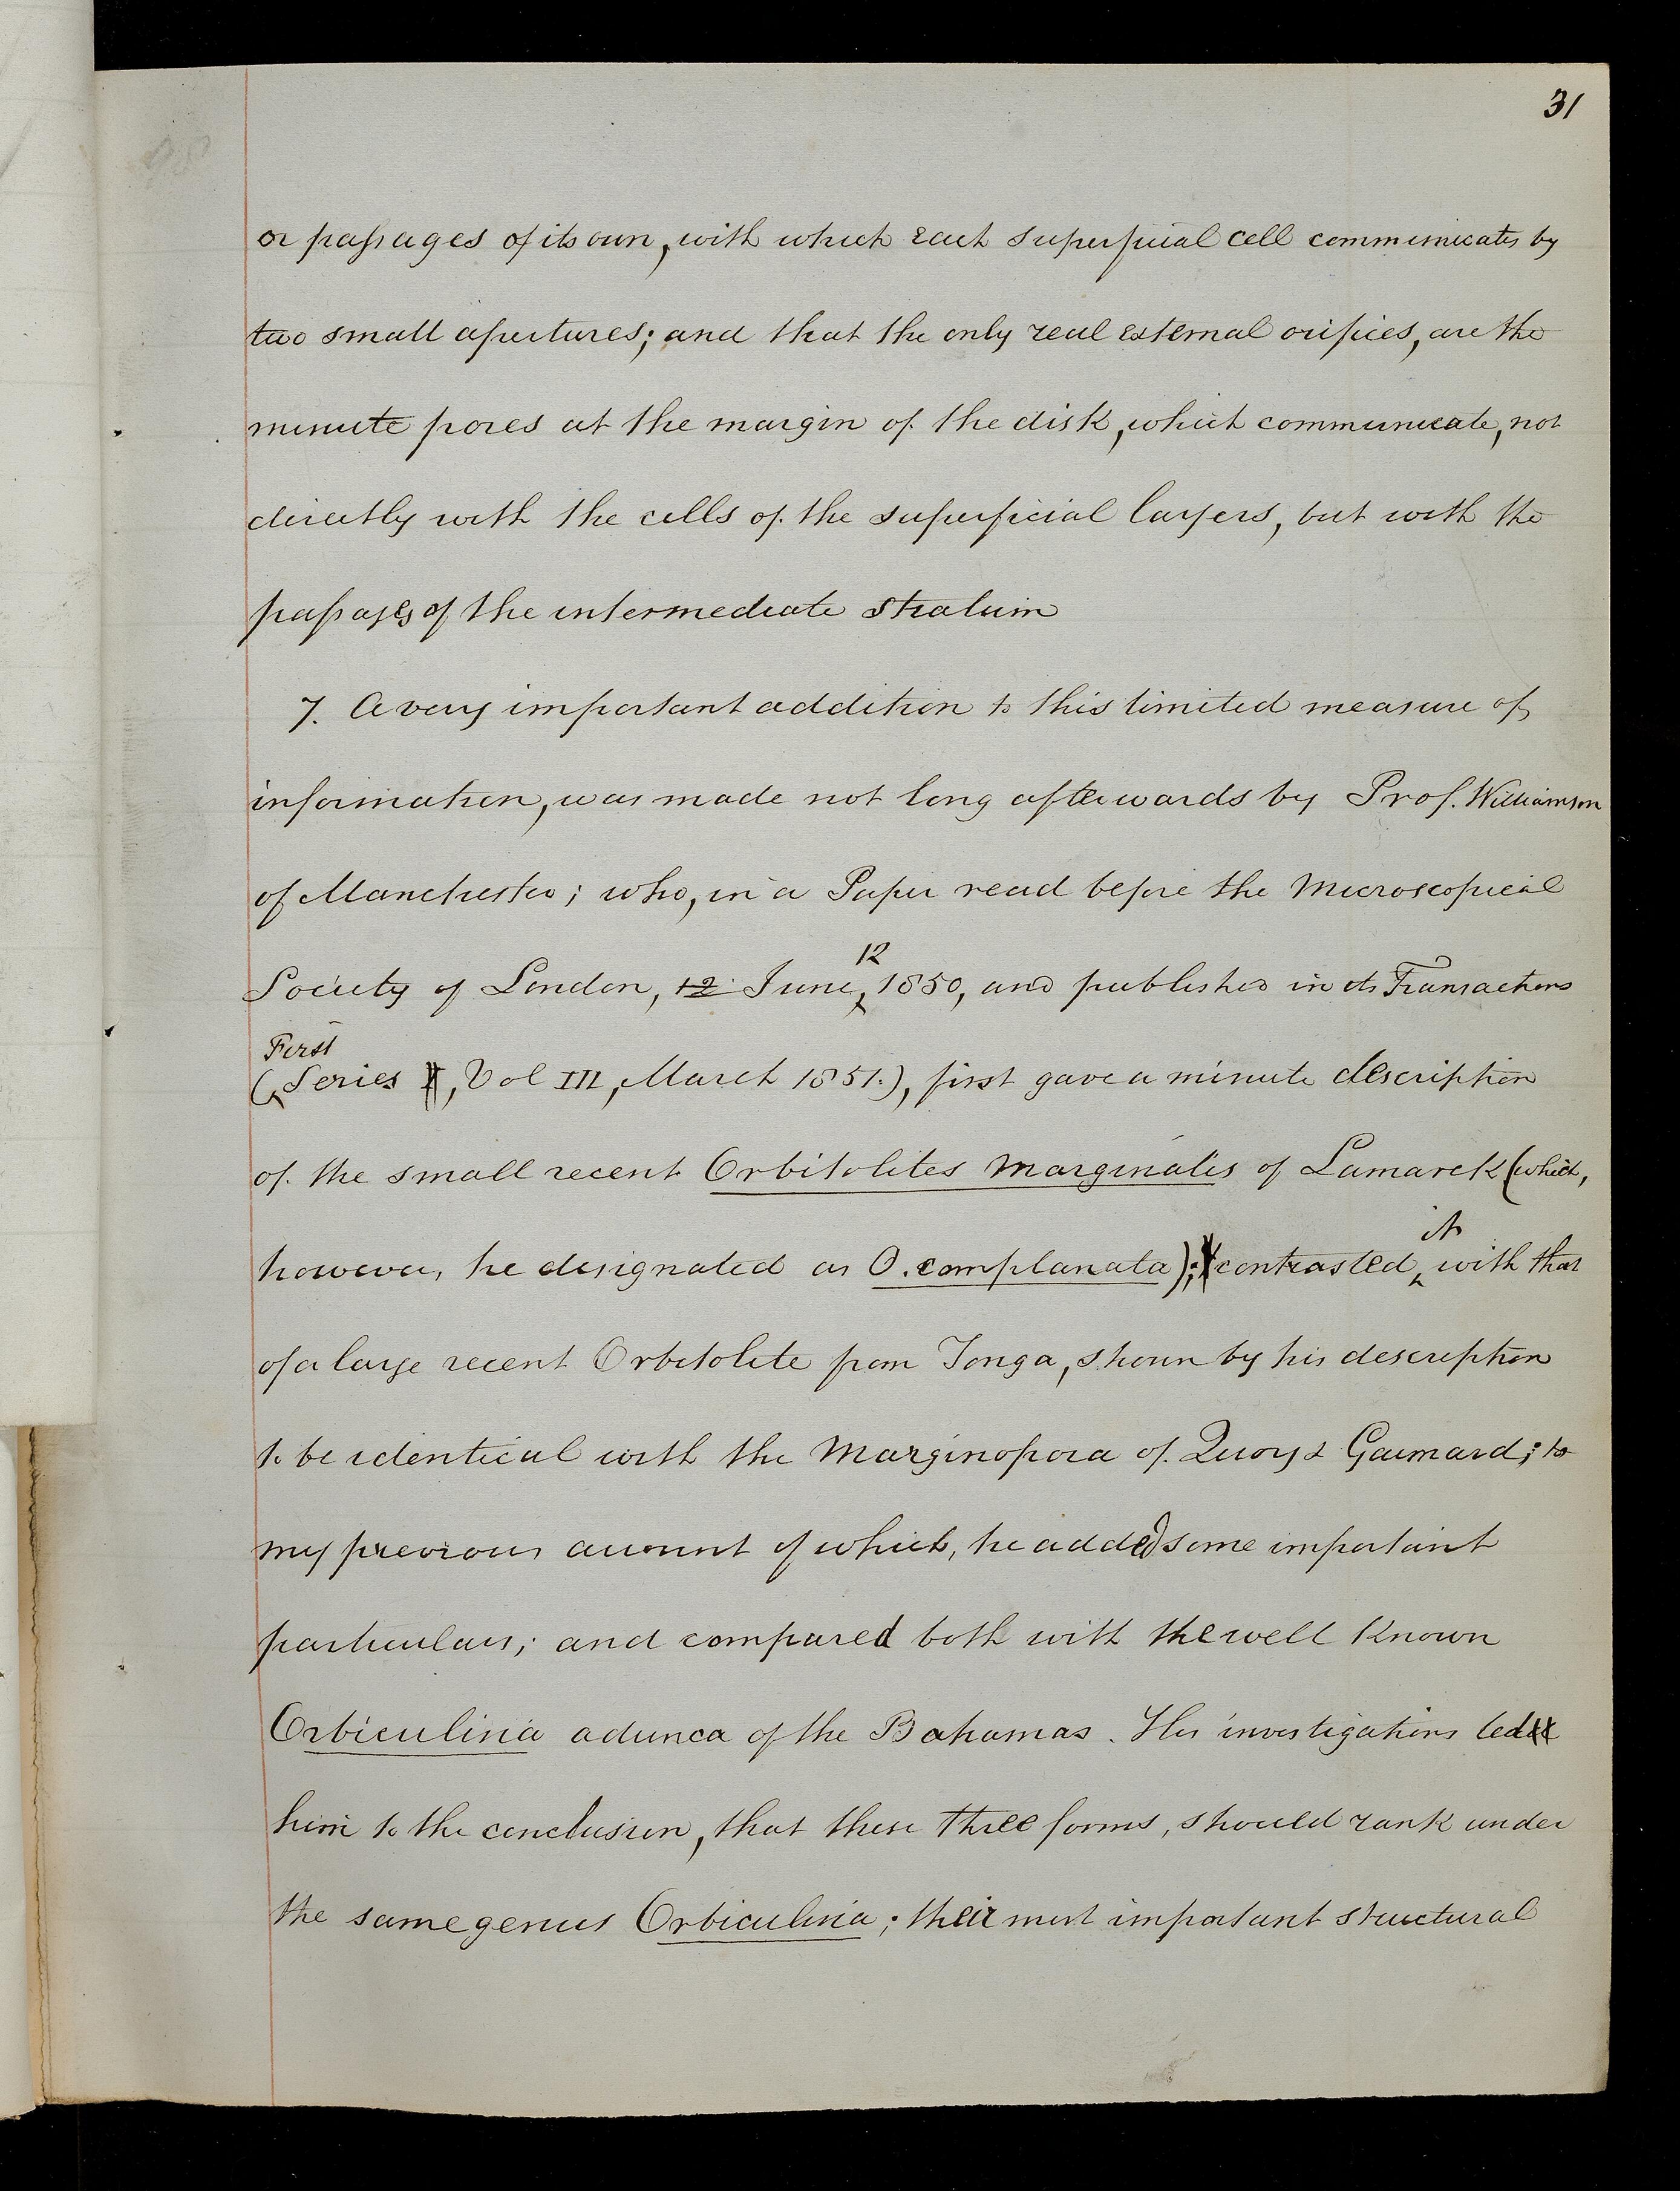 31
or passages of its own, with which each superficial cell communicates by
two small apertures; and that the only real external orifices, are the
minute pores at the margin of the disk, which communicate, not
directly with the cells of the superficial layers, but with the
passages of the intermediate stratum
7. A very important addition to this limited measure of
information, was made not long afterwards by Prof. Williamson
of Manchester; who, in a Paper read before the Microscopical
12
Society of London, 12 June, 1850, and published in its Transactions
First
(Series I, Vol III, March 1851.), first gave a minute description
of the small recent Orbitolites marginalis of Lamarck (which,
it
however, he designated as O. complanata); contrasted with that
of a large recent Orbitolite from Tonga, shown by his description
to be identical with the Marginopora of Quoy & Gaimard; to
my previous account of which, he added some important
particulars; and compared both with the well known
Orbiculina adunca of the Bahamas. His investigations led
him to the conclusion, that these three forms, should rank under
the same genus Orbiculina; their most important structural